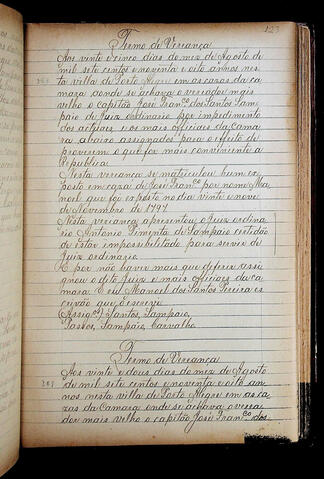 123
Termo de Vereança
Aos vinte e cinco dias do mez de Agosto de
mil sete centos e noventa e oito annos nes-
ta villa de Porto Alegre em as cazas da ca-
mara donde se achava o vereador mais
velho o capitão José Fran.co dos Santos Sam-
paio de Juiz ordinario por impedimento
dos actuaes e os mais officiaes da Cama-
ra abaixo assignados para o effeito de
proverem o que for mais conviniente a
Republica.
Nesta vereança se matriculou hum ex-
posto em caza de José Fran.co por nome Ma-
noel que foi exposto no dia vinte e nove
de Novembro de 1797.
Nesta vereança apresentou o Juiz ordina-
rio Antonio Pimenta de Sampaio certidão
de estar impossibilitado para servir de
Juiz ordinario.
E por não haver mais que deferir assi-
gnou o dito Juiz e mais officiaes da ca-
mara. E eu Manoel dos Santos Pereira es-
crivão que o escrevi
(Assig.os) Santos, Sampaio,
Passos, Sampaio, Carvalho.
Termo de Vereança
Aos vinte e dous dias do mez de Agosto
de mil sete centos e noventa e oito an-
nos nesta villa de Porto Alegre em as ca-
zas da Camara onde se achava o verea-
dor mais velho o capitão José Fran.co dos